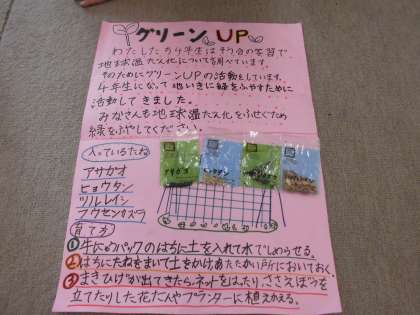 グリーン UP
わたしたち4年生は総合の学習で
地球温だん化について調べています。
そのためにグリーンUPの活動をしています。
4年生になって地いきに緑をふやすために
活動してきました。
みなさんも地球温だん化をふせぐため
緑をふやしてください。
入っているたね
アサガオ
ヒョウタン
ツルレイシ
フウセンカズラ
アサガオ
ヒョウタン
育て方
①牛にゅうパックのはちに土を入れて水でしめらせる。
②はちにたねをまいて土をかけ、あたたかい所においておく。
③まきひげが出てきたら、ネットをはったり、ささえぼうを
立てたりした花だんやプランターに植えかえる。